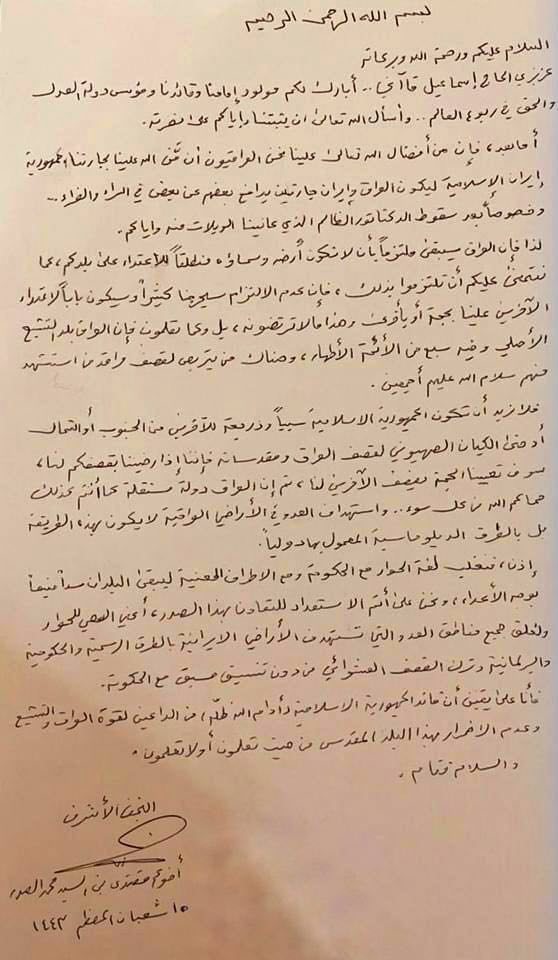 بسم الله الرحمن الرحيم
السلام عليكم ورحمة الله وبركاته
عزيزي الحاج إسماعيل قاآني .. أبارك لكم مولود إمامنا وقائدنا ومؤسس دولة العدل
والحق في ربوع العالم .. وأسأل الله تعالى أن يثبتنا وإياكم على نصرته.
أما بعد، فإن من أفضال الله تعالى علينا نحن العراقيون أن مَنّ الله علينا بجارتنا الجمهورية
إيران الإسلامية ليكون العراق وإيران جارتين يدافع بعضهم عن بعض في السراء والضراء ..
وخصوصاً بعد سقوط الدكتاتور الظالم الذي عانينا الويلات منه وإياكم.
لذا فإن العراق سيبقى ملتزماً بأن لا تكون أرضه وسماؤه منطلقاً للاعتداء على بلدكم، كما
نتمنى عليكم أن تلتزموا بذلك، فإن عدم الالتزام سيحرجنا كثيراً وسيكون باباً لاعتداء
الآخرين علينا بحجة أو بأخرى وهذا ما لا ترتضونه، بل وكما تعلمون فإن العراق بلد التشيع
الأصلي وفيه سبع من الأئمة الأطهار، وهناك من يتربص لقصف مراقد من استشهد
منهم سلام الله عليهم أجمعين.
فلا نريد أن تكون الجمهورية الاسلامية سبباً وذريعة للآخرين من الجنوب أو الشمال
أو حتى الكيان الصهيوني لقصف العراق ومقدساته فإننا إذا رضينا بقصفكم لنا،
سوف تعيينا الحجة بقصف الآخرين لنا، ثم إن العراق دولة مستقلة كما أنتم كذلك
حماكم الله من كل سوء .. واستهداف العدو في الأراضي العراقية لا يكون بهذه الطريقة
بل بالطرق الدبلوماسية المعمول بها دولياً.
إذن، فنغلب لغة الحوار مع الحكومة ومع الاطراف المعنية ليبقى البلدان سداً منيعاً
بوجه الأعداء، ونحن على أتم الاستعداد للتعاون بهذا الصدد، أعني السعي للحوار
ولغلق جميع مناطق العدو التي تستهدف الأراضي الايرانية بالطرق الرسمية والحكومية
والبرلمانية وترك القصف العشوائي من دون تنسيق مسبق مع الحكومة.
فأنا على يقين أن قائد الجمهورية الاسلامية (أدام الله ظله) من الداعين لقوة العراق والتشيع
وعدم الاضرار بهذا البلد المقدس من حيث تعلمون أو لا تعلمون.
والسلام ختام.
النجف الأشرف
أخوكم مقتدى بن السيد محمد الصدر
١٥ شعبان المعظم ١٤٤٣